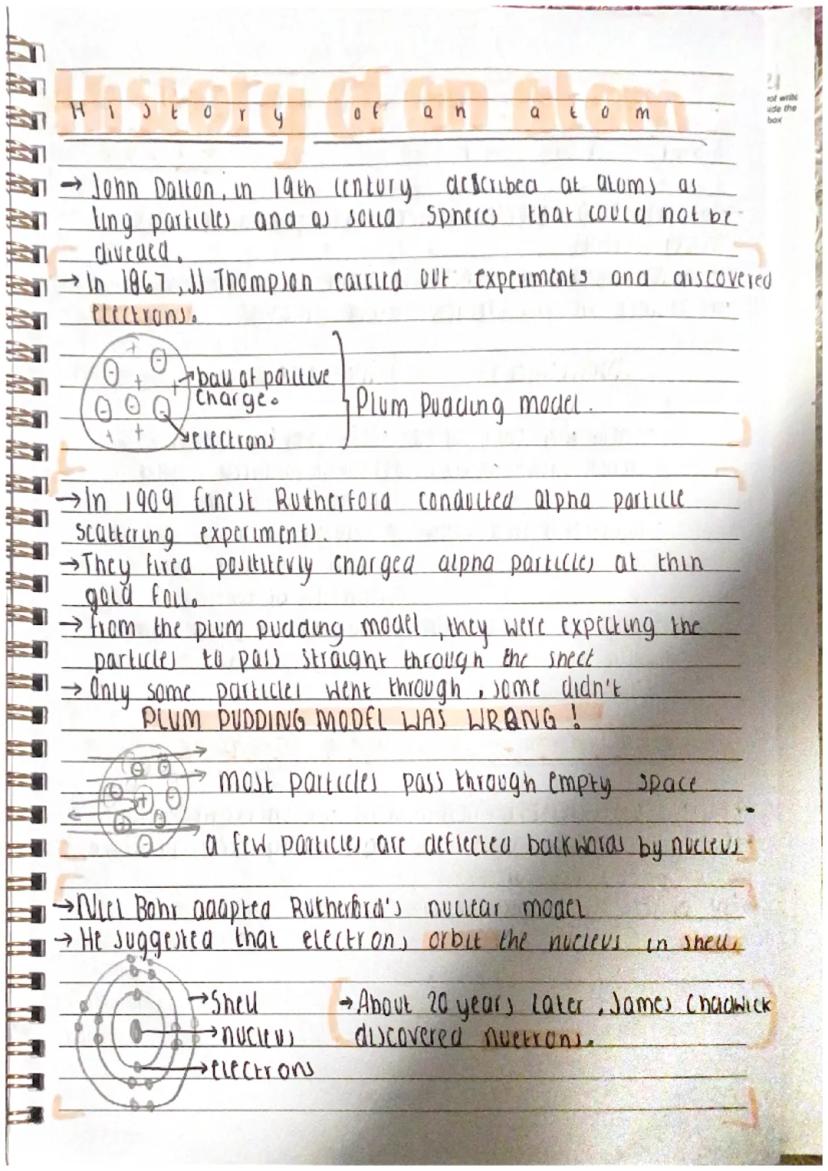 History of an atom
History of an atom
→ John Dalton, in 19th century described at atoms as
ting particles and as solid spheres that could not be
diveded.
→ In 1867, JJ Thompson carried out experiments and discovered
electrons.
→ ball of positive
charge.
Plum Pudding model.
→ electrons
→ In 1909 Ernest Rutherford conducted alpha particle
scattering experiments.
→ They fired posititevly charged alpha particles at thin
gold foil.
→ from the plum pudding model, they were expecting the
particles to pass straight through the sheet
→ Only some particles went through, some didn't
PLUM PUDDING MODEL WAS WRONG!
most particles pass through empty space
a few particles are deflected backwards by nucleus
→ Niel Bohr adapted Rutherford's nuclear model
→ He suggested that electrons orbit the nucleus in shells
→ Shell
→ nucleus
→ electrons
→ About 20 years later, James Chadwick
discovered nuetrons.
not write
ide the
box